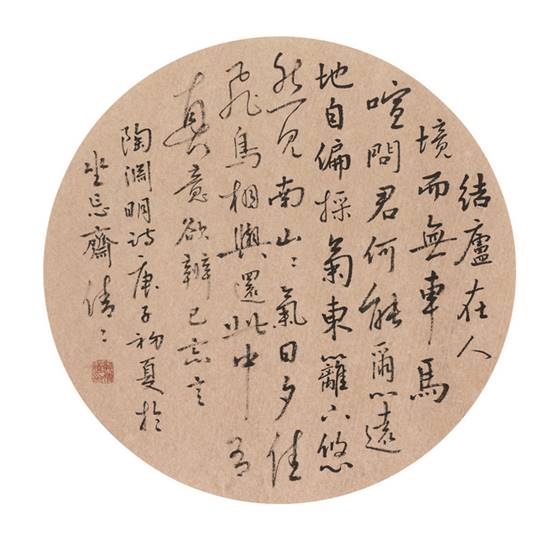 結廬在人
境而無車馬
喧問君何能爾心遠
地自偏採菊東籬下悠
然見南山〻氣日夕佳
飛鳥相與還此中有
真意欲辨已忘言
陶淵明詩庚子初夏於
坐忘齋倩〻